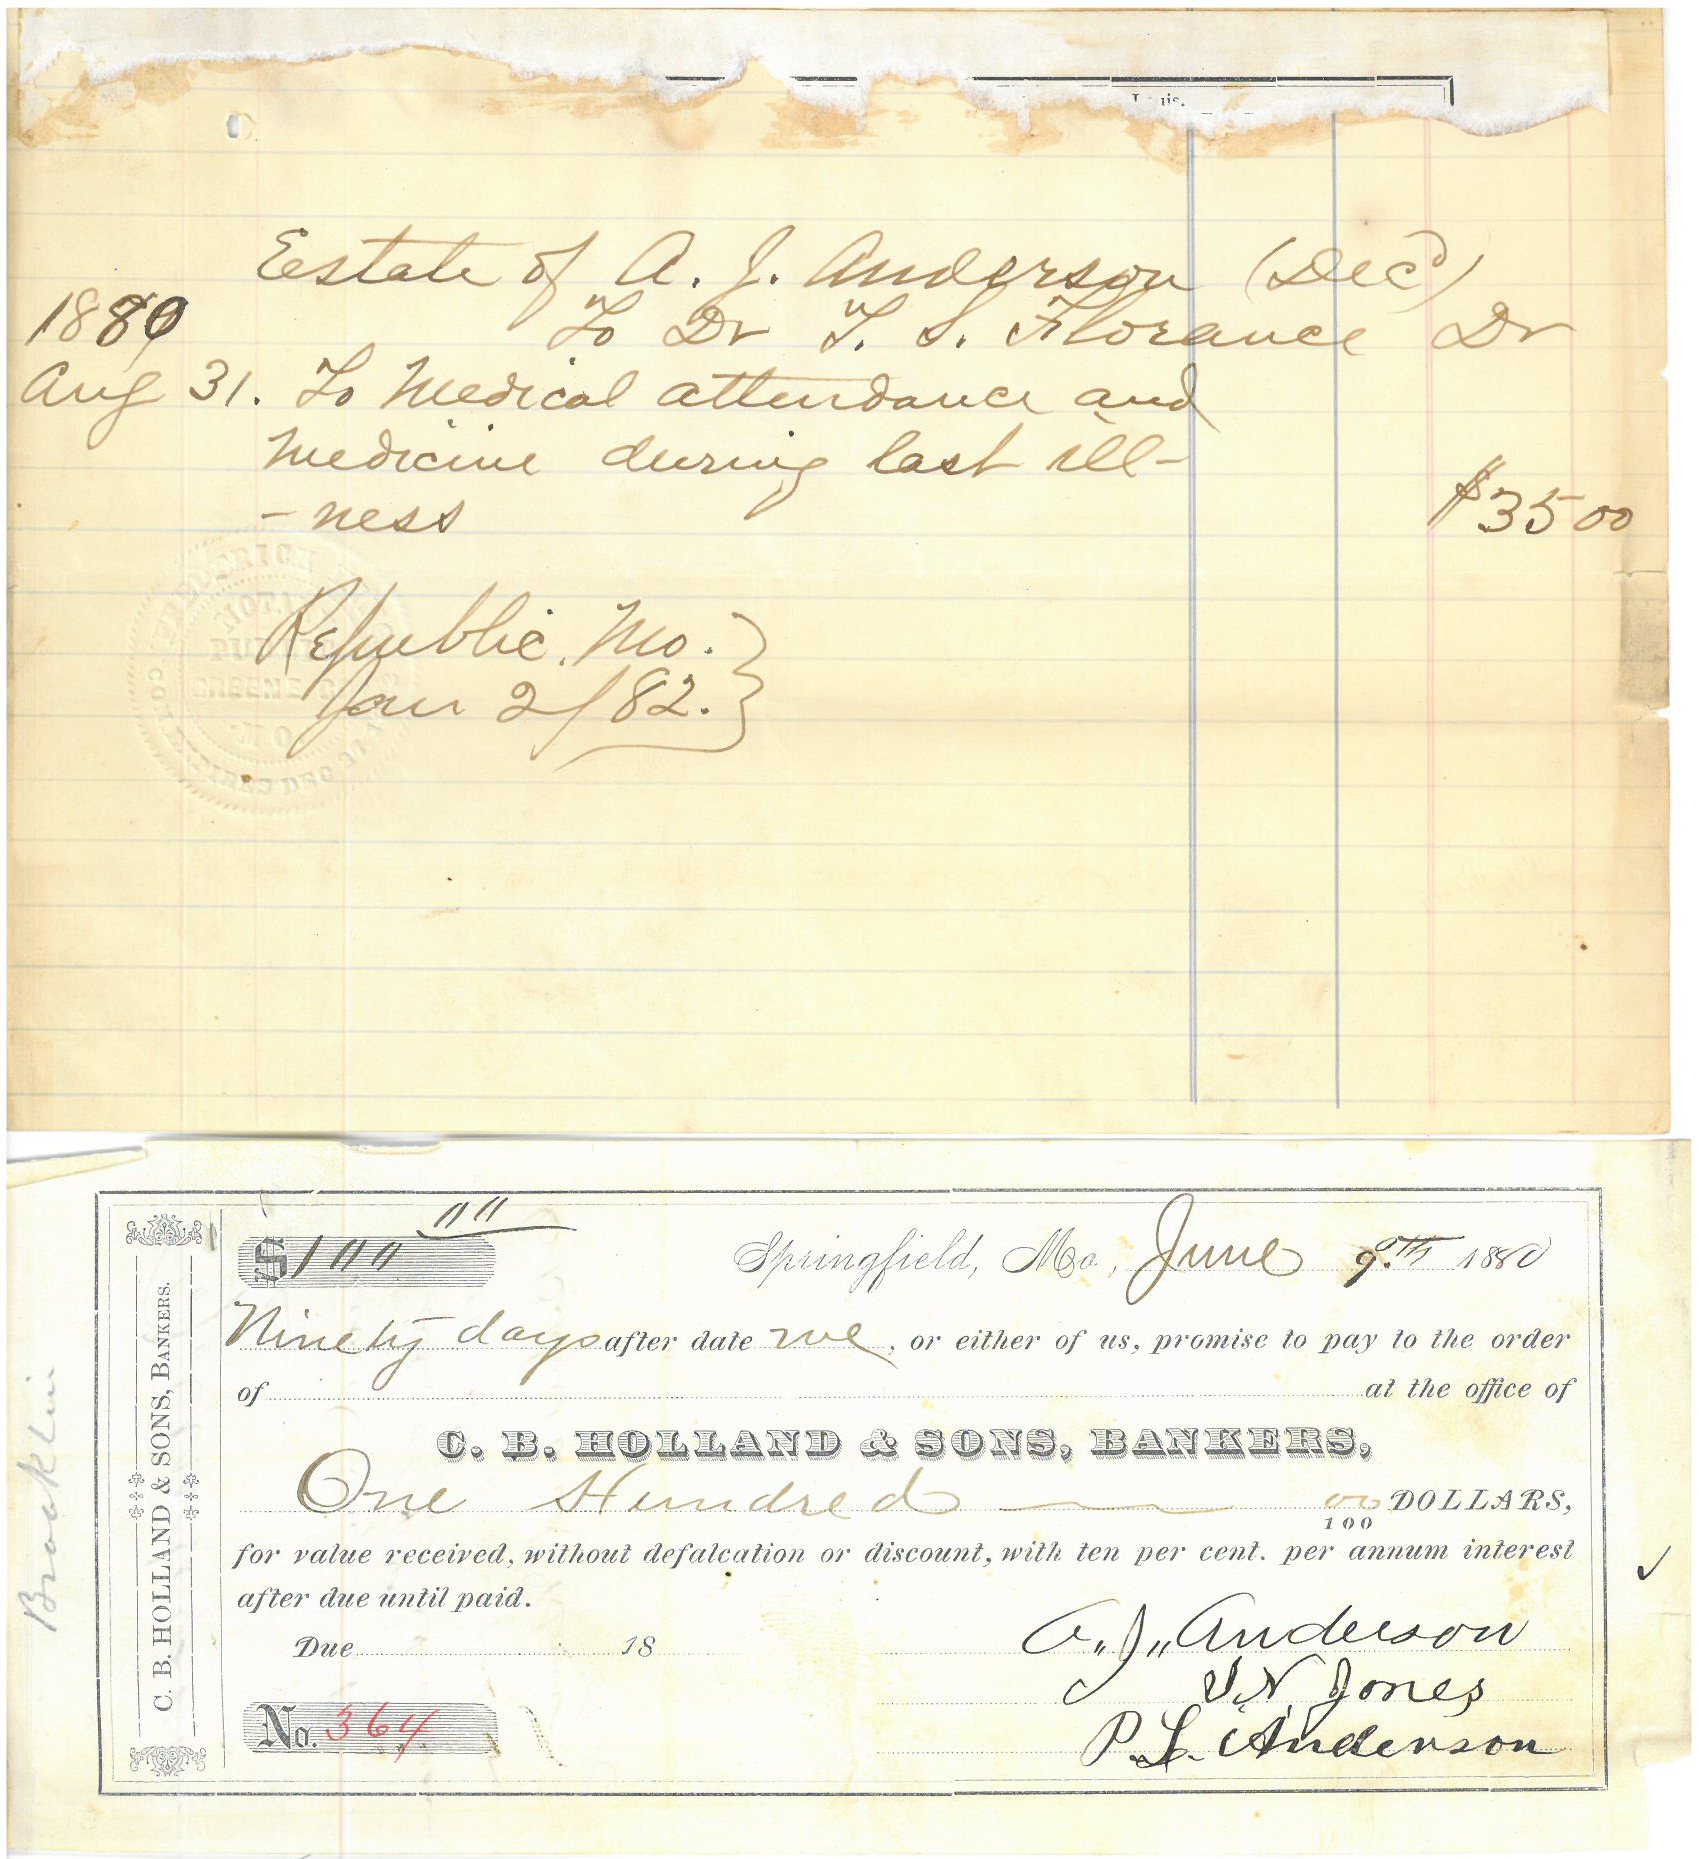 Estate of A. J. Anderson (Dec'd)
1880 To Dr T. S. Florance Dr
Aug 31. To Medical attendance and
Medicine during last ill-
-ness $35 00
NOTARY
PUBLIC
GREENE CO.
MO.
Republic, Mo.
Jan 2/82.
C. B. HOLLAND & SONS, BANKERS.
Brooklin
$100 00
Springfield, Mo., June 9th 1880
Ninety days after date we, or either of us, promise to pay to the order
of at the office of
C. B. HOLLAND & SONS, BANKERS,
One Hundred 00/100 DOLLARS,
for value received, without defalcation or discount, with ten per cent. per annum interest
after due until paid.
Due 18
A. J. Anderson
Jones
No. 364
P. L. Anderson